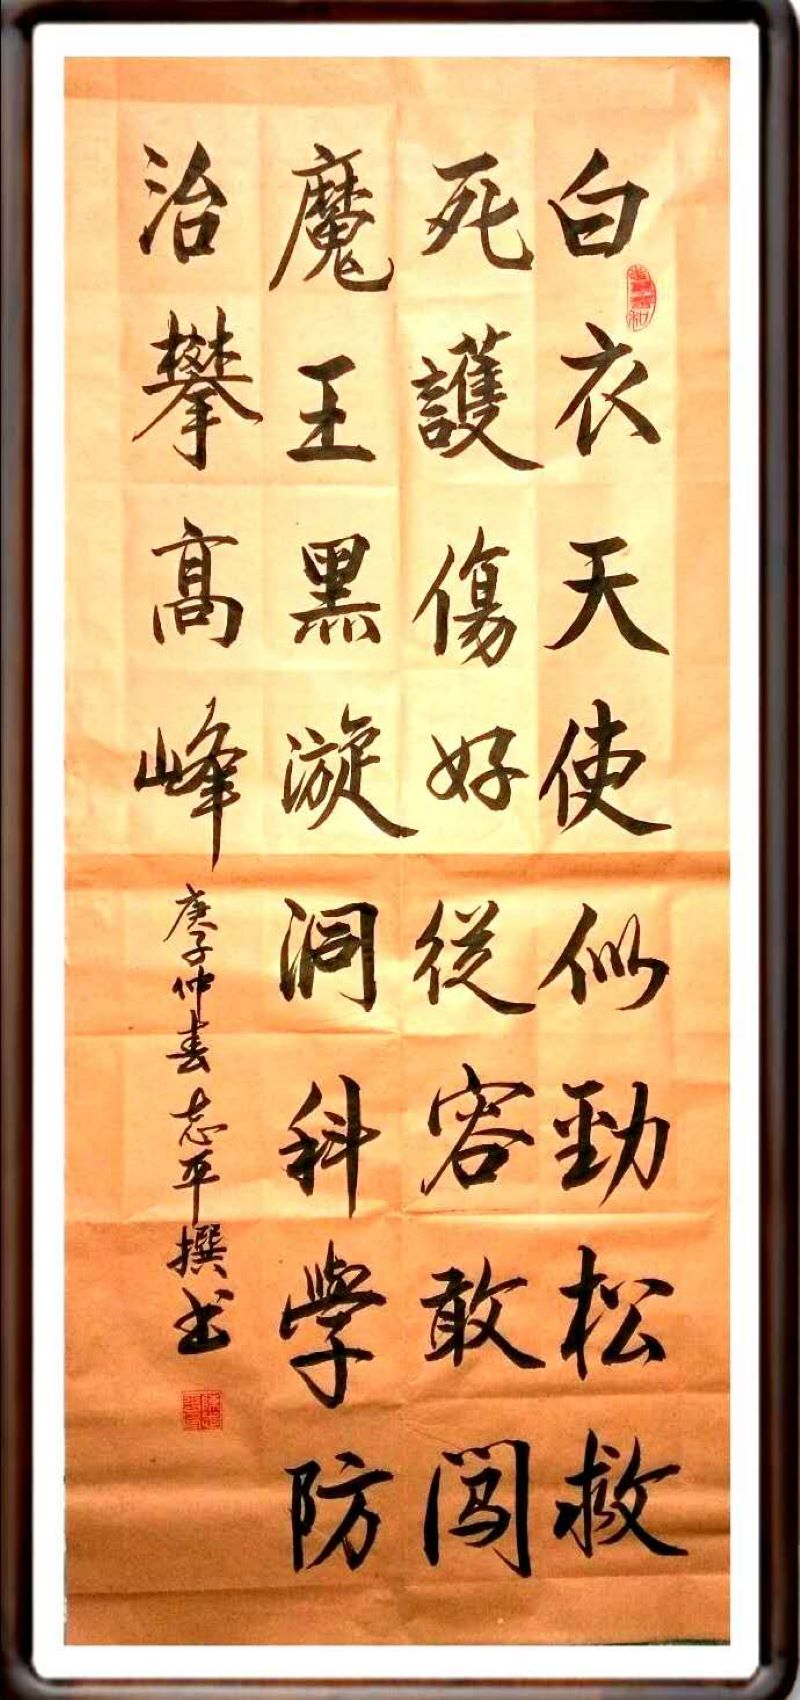 白衣天使似勁松救
死護傷好從容敢闯
魔王黑漩洞科學防
治攀高峰
庚子仲春志平撰书